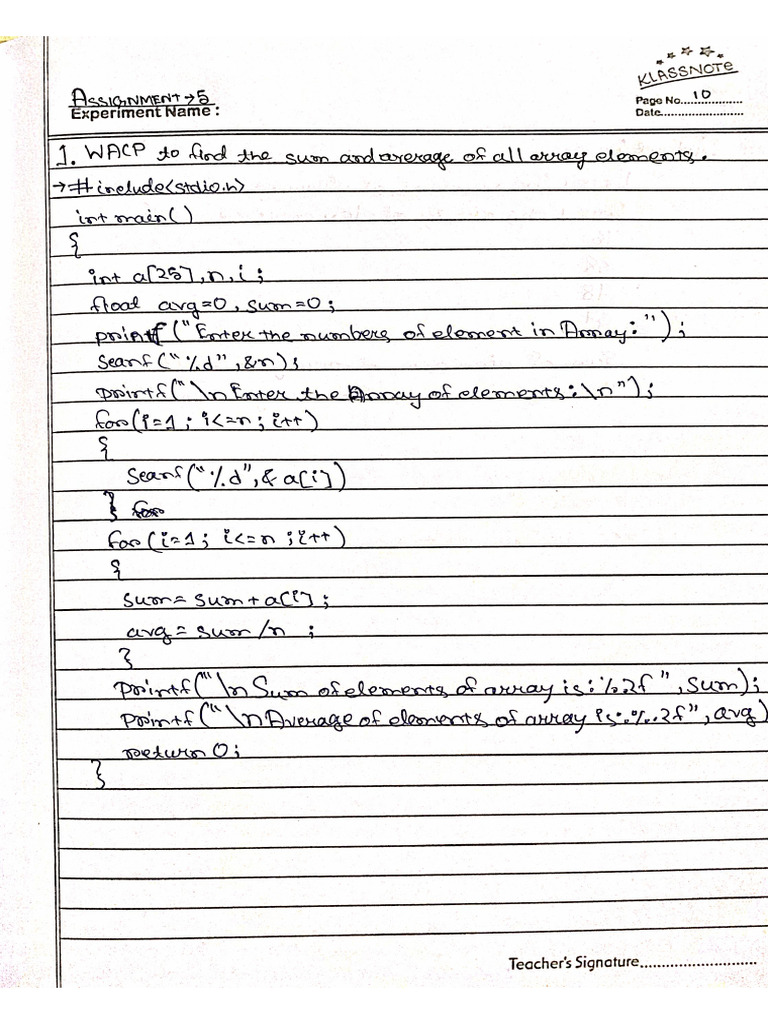 KLASSNOTE
ASSIGNMENT→5
Page No....10
Experiment Name :
Date........................
1. WACP to find the sum and average of all array elements.
→#include<stdio.h>
int main()
{
int a[25],n,i;
float avg=0, sum=0;
printf("Enter the numbers of element in Array:");
Scanf("%d",&n);
printf("\nEnter the Array of elements:\n");
for(i=1; i<=n; i++)
{
Scanf("%d",& a[i])
} for
for(i=1; i<=n ;i++)
{
sum= sum+a[i];
avg= sum/n ;
}
printf("\nSum of elements of array is:%.2f",sum);
printf("\nAverage of elements of array is:%.2f",avg)
return 0;
}
Teacher's Signature...........................